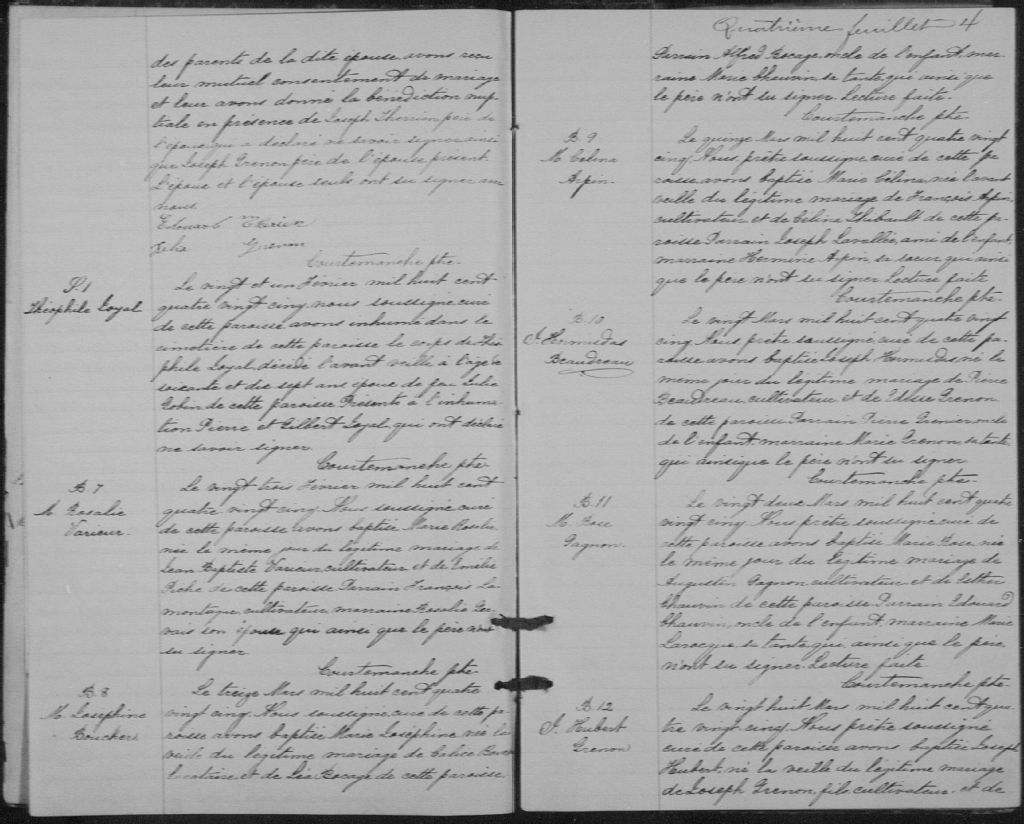 des parents de la dite épouse avons reçu
leur mutuel consentement de mariage
et leur avons donné la bénédiction nup-
tiale en présence de Joseph Therrien père de
l'époux qui a déclaré ne savoir signer ainsi
que Joseph Grenon père de l'épouse présent
L'époux et l'épouse seuls ont su signer avec
nous.
Edouard Therien
Julie Grenon
Courtemanche ptre.
S.1
Théophile Loyal
Le vingt et un Février mil huit cent
quatre vingt cinq, nous soussigné curé
de cette paroisse avons inhumé dans le
cimetière de cette paroisse le corps de Théo
phile Loyal, décédé l'avant veille à l'âge de
soixante et dix sept ans époux de feu Julie
Gobin de cette paroisse. Présents à l'inhuma
tion Pierre et Gilbert Loyal qui ont déclaré
ne savoir signer.
Courtemanche ptre
B.7
M. Rosalie
Varieur.
Le vingt trois Février mil huit cent
quatre vingt cinq, Nous soussigné curé
de cette paroisse avons baptisé Marie Rosalie
née le même jour du légitime mariage de
Jean Baptiste Varieur cultivateur et de Emélie
Piché de cette paroisse. Parrain François La
montagne, cultivateur, marraine Rosalie Ger
vais son épouse qui ainsi que le père n'ont
su signer.
Courtemanche ptre
B.8
M. Joséphine
Bouchers
Le treize Mars mil huit cent quatre
vingt cinq, Nous soussigné, curé de cette pa
roisse avons baptisé Marie Joséphine née la
veille du légitime mariage de Calice
et de Léa Bocage de cette paroisse.
Quatrième feuillet 4
Parrain Alfred Bocage oncle de l'enfant, mar
raine Marie Chauvin, sa tante qui ainsi que
le père n'ont su signer. Lecture faite.
Courtemanche ptre.
B.9
M. Célina
Arpin.
Le quinze Mars mil huit cent quatre vingt
cinq, Nous prêtre soussigné, curé de cette pa
roisse, avons baptisé Marie Célina, née l'avant
veille du légitime mariage de François Arpin,
cultivateur et de Céline Thibault de cette pa-
roisse. Parrain Joseph Lavallée, ami de l'enfant,
marraine Hermine Arpin, sa soeur qui ainsi
que le père n'ont su signer. Lecture faite
Courtemanche ptre.
B.10
J. Hermidas
Beaudreau
Le vingt Mars mil huit cent quatre vingt
cinq, Nous prêtre soussigné, curé de cette pa-
roisse avons baptisé Joseph Hermidas, né le
même jour du légitime mariage de Pierre
Beaudreau, cultivateur, et de Edesse Grenon
de cette paroisse. Parrain Pierre Grenier oncle
de l'enfant, marraine Marie Grenon, sa tante
qui ainsi que le père n'ont su signer
Courtemanche ptre.
B.11
M. Rose
Gagnon.
Le vingt deux Mars mil huit cent quatre
vingt cinq, Nous prêtre soussigné, curé de
cette paroisse avons baptisé Marie Rose, née
le même jour du légitime mariage de
Augustin Gagnon cultivateur, et de Esther
Chauvin de cette paroisse. Parrain Edouard
Chauvin, oncle de l'enfant, marraine Marie
Larocque sa tante qui, ainsi que le père
n'ont su signer. Lecture faite.
Courtemanche ptre.
B.12
J. Hubert
Grenon
Le vingt huit Mars mil huit cent qua
tre vingt cinq, Nous prêtre soussigné
curé de cette paroisse avons baptisé Joseph
Hubert, né la veille du légitime mariage
de Joseph Grenon, fils cultivateur, et de